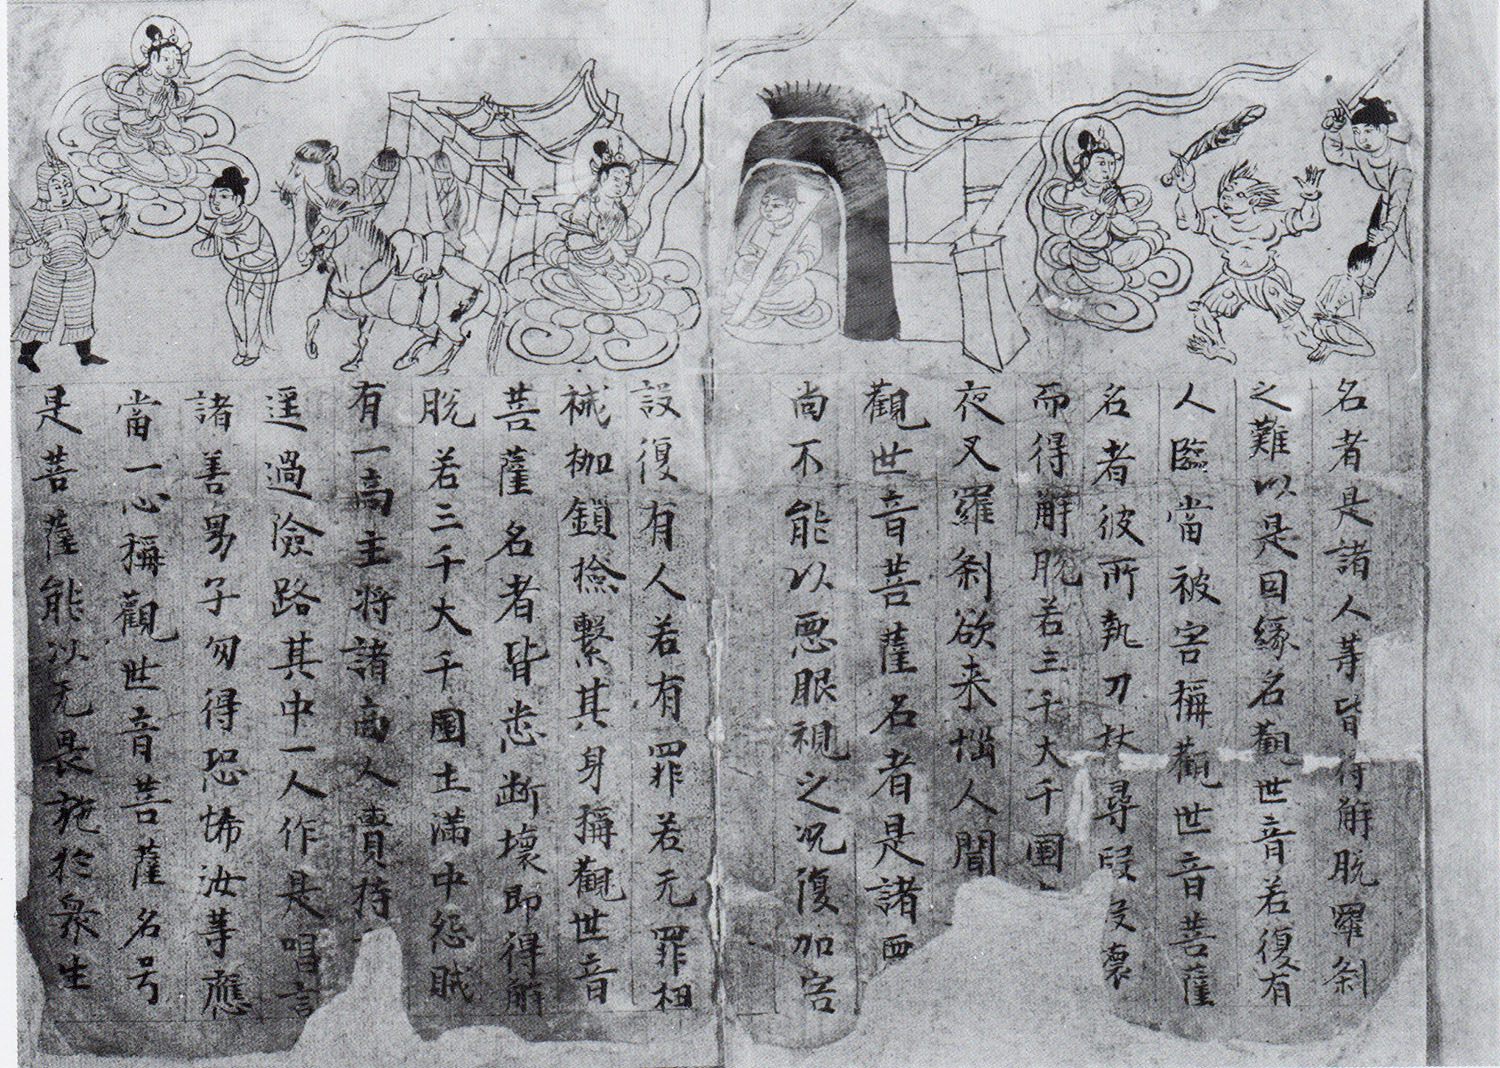 名者是諸人䓁皆得解脫羅剎
之難以是因緣名觀世音若復有
人臨當被害稱觀世音菩薩
名者彼所執刀杖尋段段壞
而得解脫若三千大千國
夜叉羅剎欲来惱人聞
觀世音菩薩名者是諸惡
尚不能以惡眼視之况復加害
設復有人若有罪若无罪杻
械枷鎖撿繫其身稱觀世音
菩薩名者皆悉断壞即得解
脫若三千大千國土滿中怨賊
有一商主将諸商人賷持
逕過險路其中一人作是唱言
諸善男子勿得恐怖汝䓁應
當一心稱觀世音菩薩名号
是菩薩能以无畏施於衆生